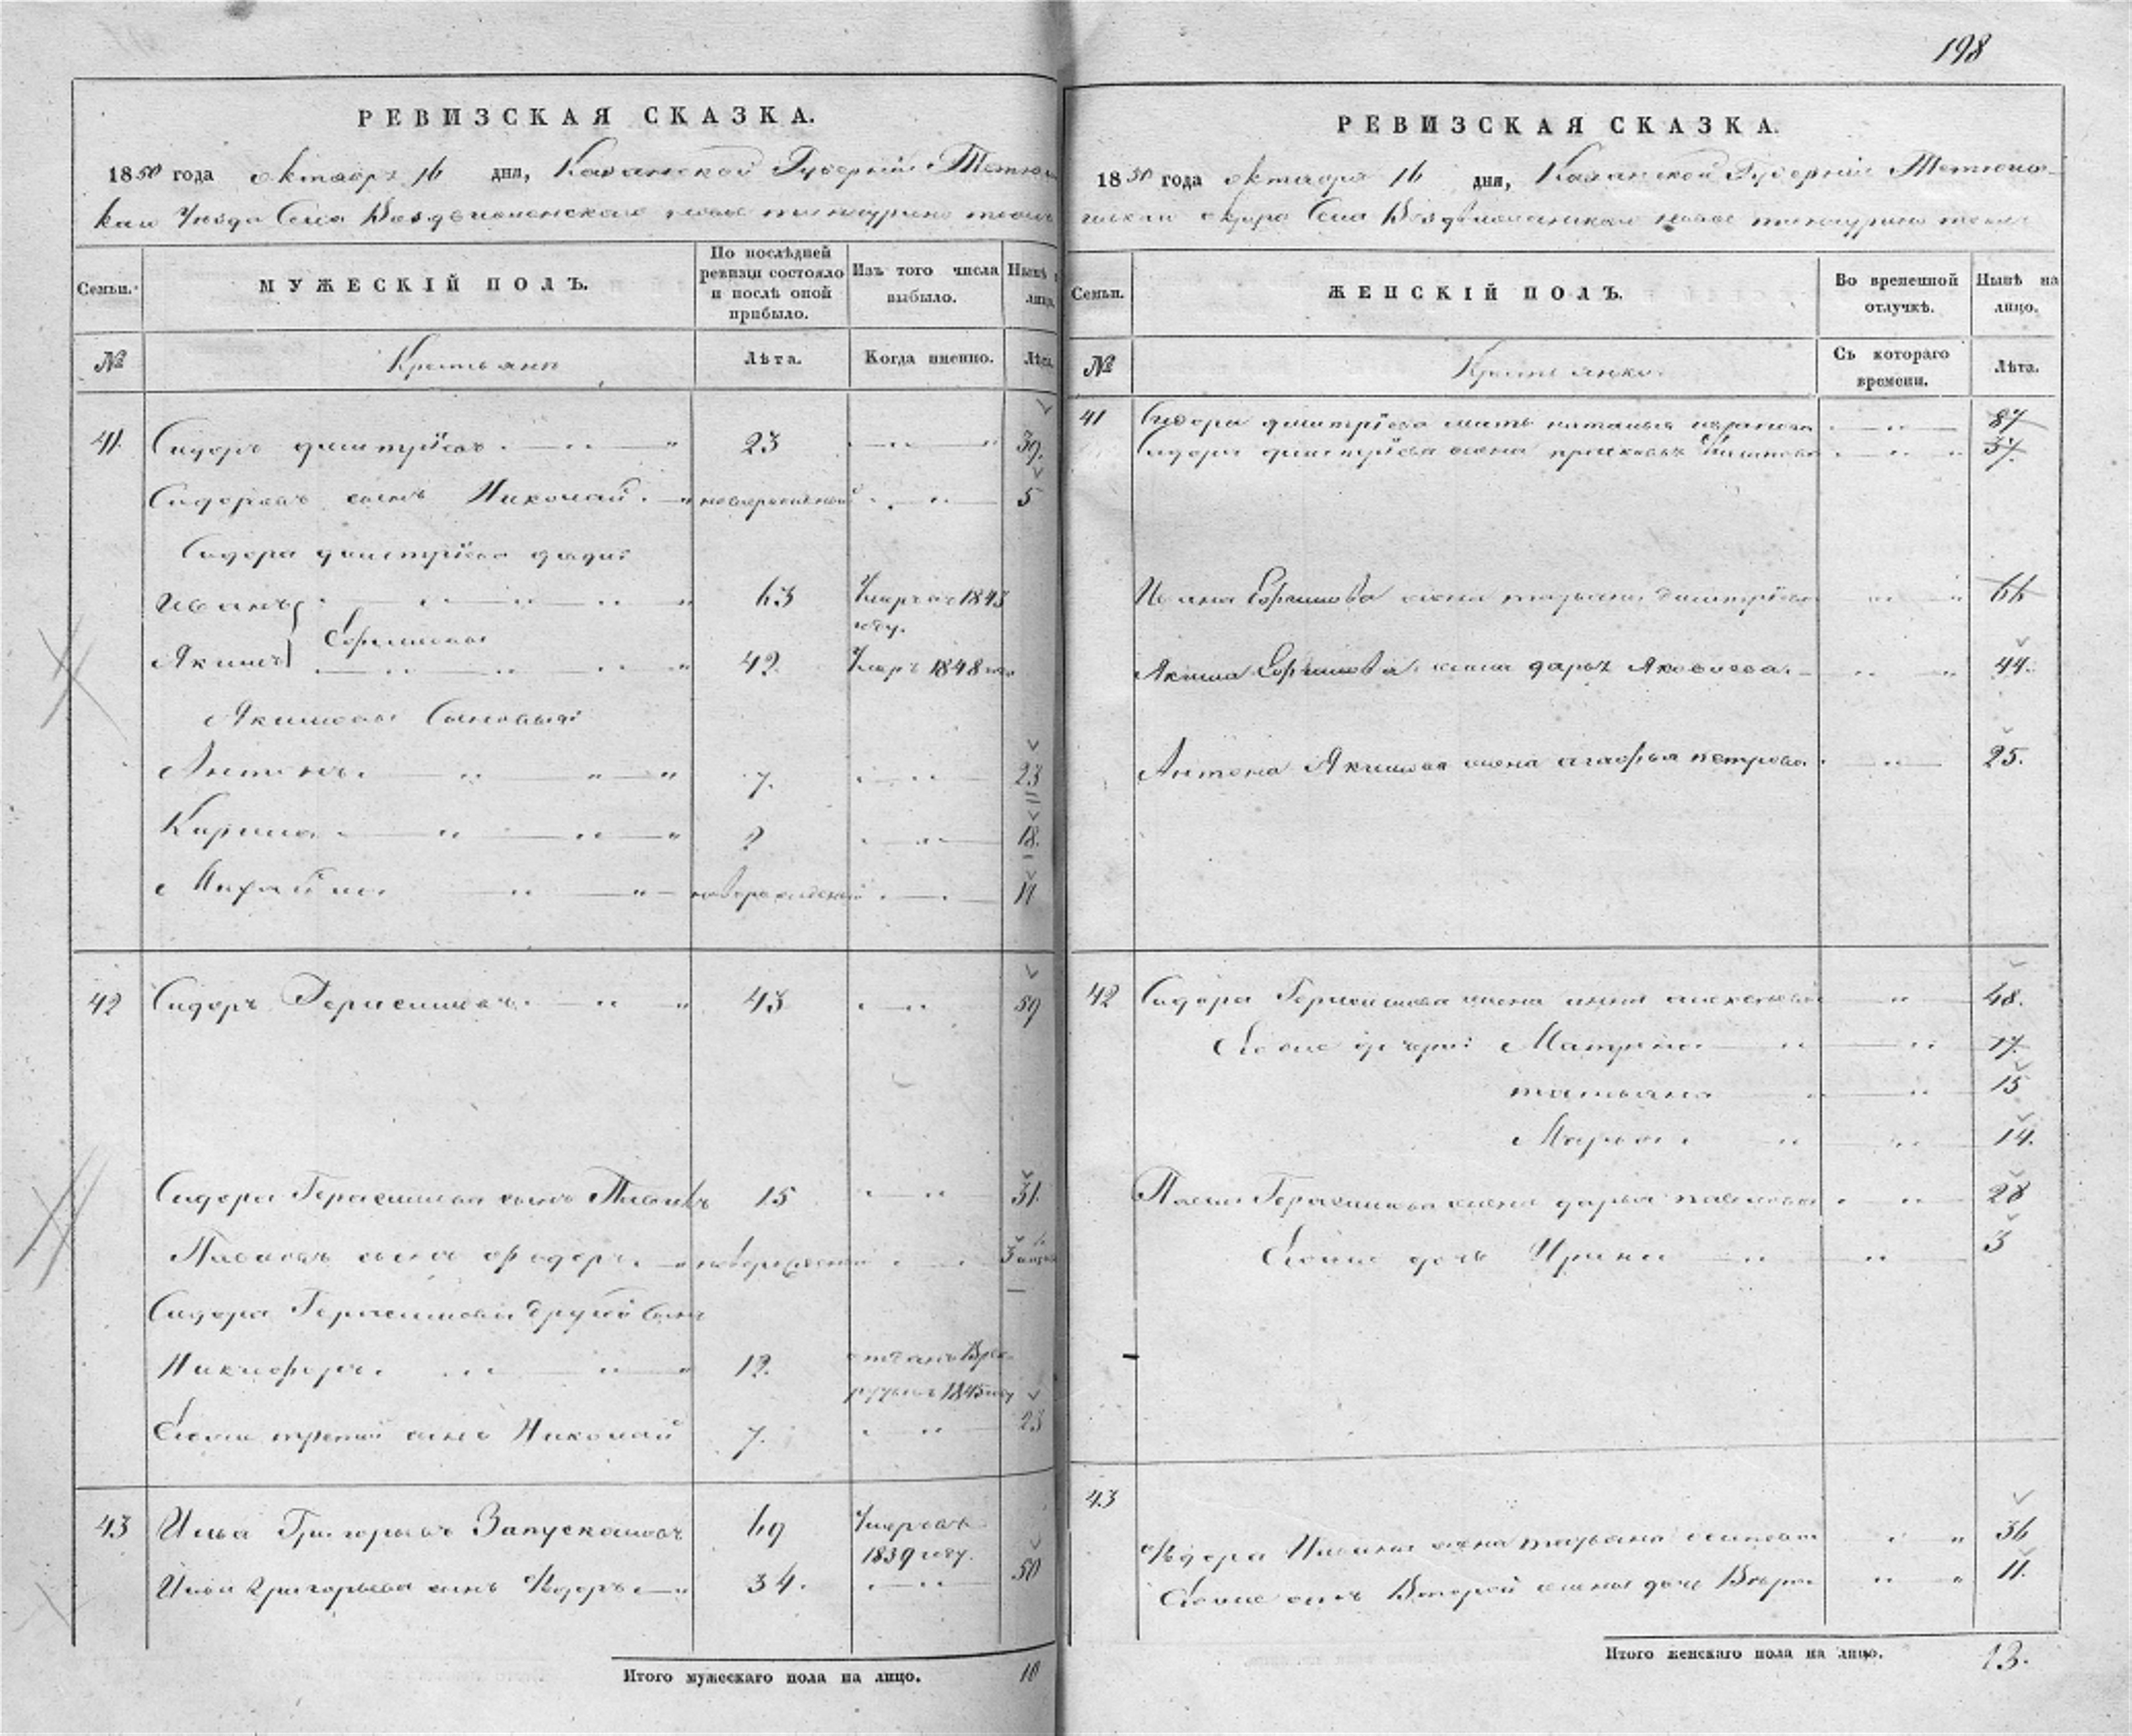 198
РЕВИЗСКАЯ СКАЗКА.
1850 года октября 16 дня, Казанской Губернiи Тетюш
каго Уѣзда Села Воздвиженскаго
Семьи. МУЖЕСКІЙ ПОЛЪ. По послѣдней ревизіи состояло и послѣ оной прибыло. Изъ того числа выбыло. Нынѣ лицо.
№ Крестьяне Лѣта. Когда именно. Лѣта.
41 Сидоръ дмитрiевъ 23 39.
Сидоровъ сынъ Николай новорожденной 5
Сидора дмитрiева дяди:
Иванъ 63 Умеръ въ 1843 году.
Ефимовы
Якимъ 42 Умеръ 1848 года
Якимовы Сыновья:
Антонъ. 7. 23
Кирила 2 18.
Михайла. новорожденный 14
42 Сидоръ Герасимовъ. 43 59
Сидора Герасимова сынъ 15 31.
сынъ ѳедоръ. новорожденный 3
Сидора Герасимова другой сынъ
Никифоръ. 12. отданъ въ рекруты въ 1845 году
Ево же третий сынъ Николай 7. 23
43 Илья Григорьевъ Запускаловъ 69 Умеръ въ 1839 году.
Ильи григорьева сынъ ѳедоръ 34. 50
Итого мужескаго пола на лицо. 10
РЕВИЗСКАЯ СКАЗКА.
1850 года октября 16 дня, Казанской Губернiи Тетюш-
округа Села Воздвиженскаго
Семьи. ЖЕНСКІЙ ПОЛЪ. Во временной отлучкѣ. Нынѣ на лицо.
№ Крестьянки. Съ котораго времени. Лѣта.
41 Сидора дмитрiева мать наталья 87
Сидора дмитрiева жена 37.
Ивана Ефимова жена татьяна дмитрiева 66
Якима Ефимова жена дарья Яковлева. 44.
Антона Якимова жена агафья петрова. 25.
42 Сидора Герасимова жена анна 48.
Ево же дочери: Матрена 17.
татьяна 15
Марья. 14.
Герасимова жена дарья 28
Ево же дочь Ирина 3
43
ѳедора Ильина жена татьяна 36
Ево же отъ Второй жены дочь 11.
Итого женскаго пола на лицо. 13.